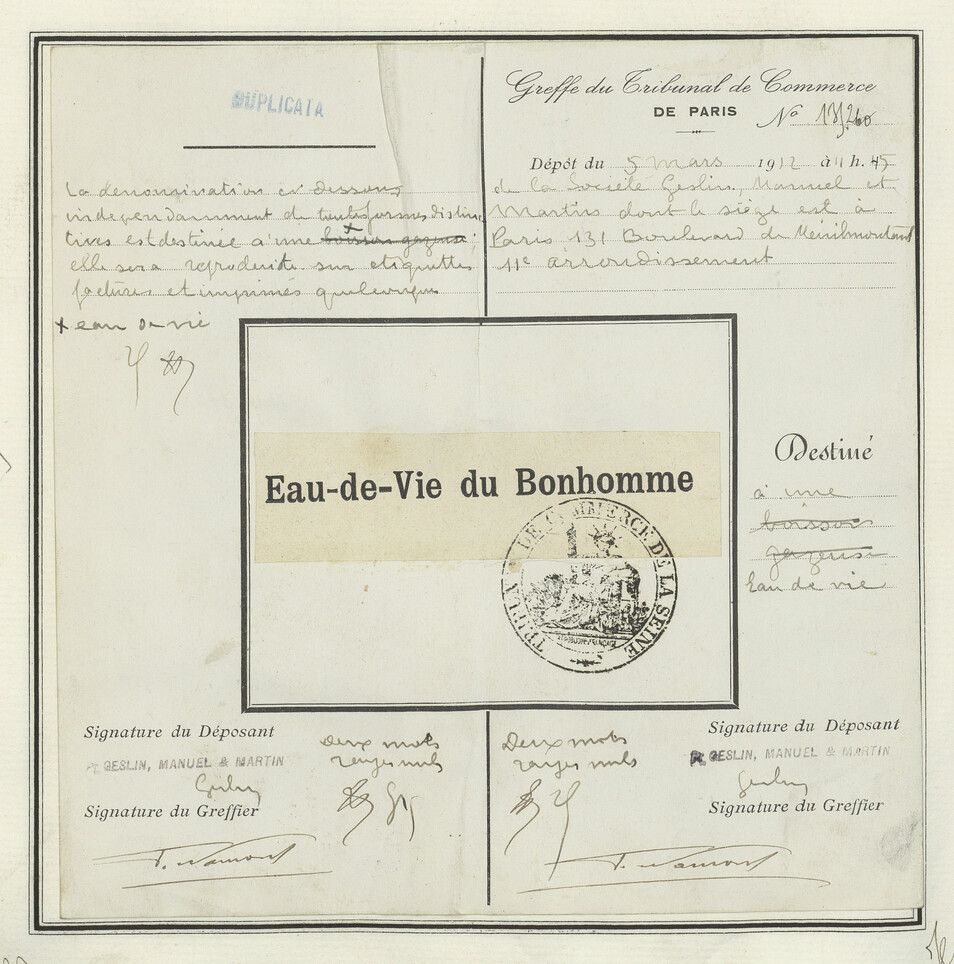 DUPLICATA
La dénomination ci dessous,
indépendamment de toutes formes distinc
tives est destinée à une boisson gazeuse;
elle sera reproduite sur etiquettes
factures et imprimés quelconques
x eau de vie
Greffe du Tribunal de Commerce
DE PARIS
No
Dépôt du 5 mars 1912 à 11 h. 45
de la Société Geslin, Manuel et
Martin dont le siège est à
Paris 131 Boulevard de Ménilmontant
11e arrondissement
Eau-de-Vie du Bonhomme
TRIBUNAL DE COMMERCE DE LA SEINE
Destiné
à une
boisson
gazeuse
Eau de vie
Signature du Déposant
Pr GESLIN, MANUEL & MARTIN
Geslin
Signature du Greffier
Deux mots
rayés nuls
Deux mots
rayés nuls
Signature du Déposant
Pr GESLIN, MANUEL & MARTIN
Geslin
Signature du Greffier